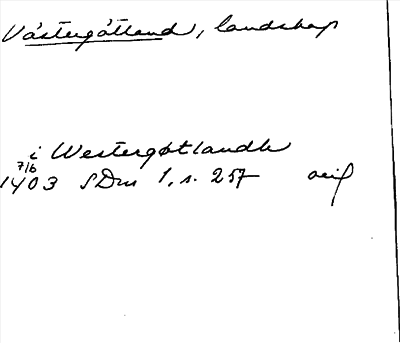 Västergötland, landskap
i Westergøtlandh
7/6
1403 SDns 1, s. 257 avif